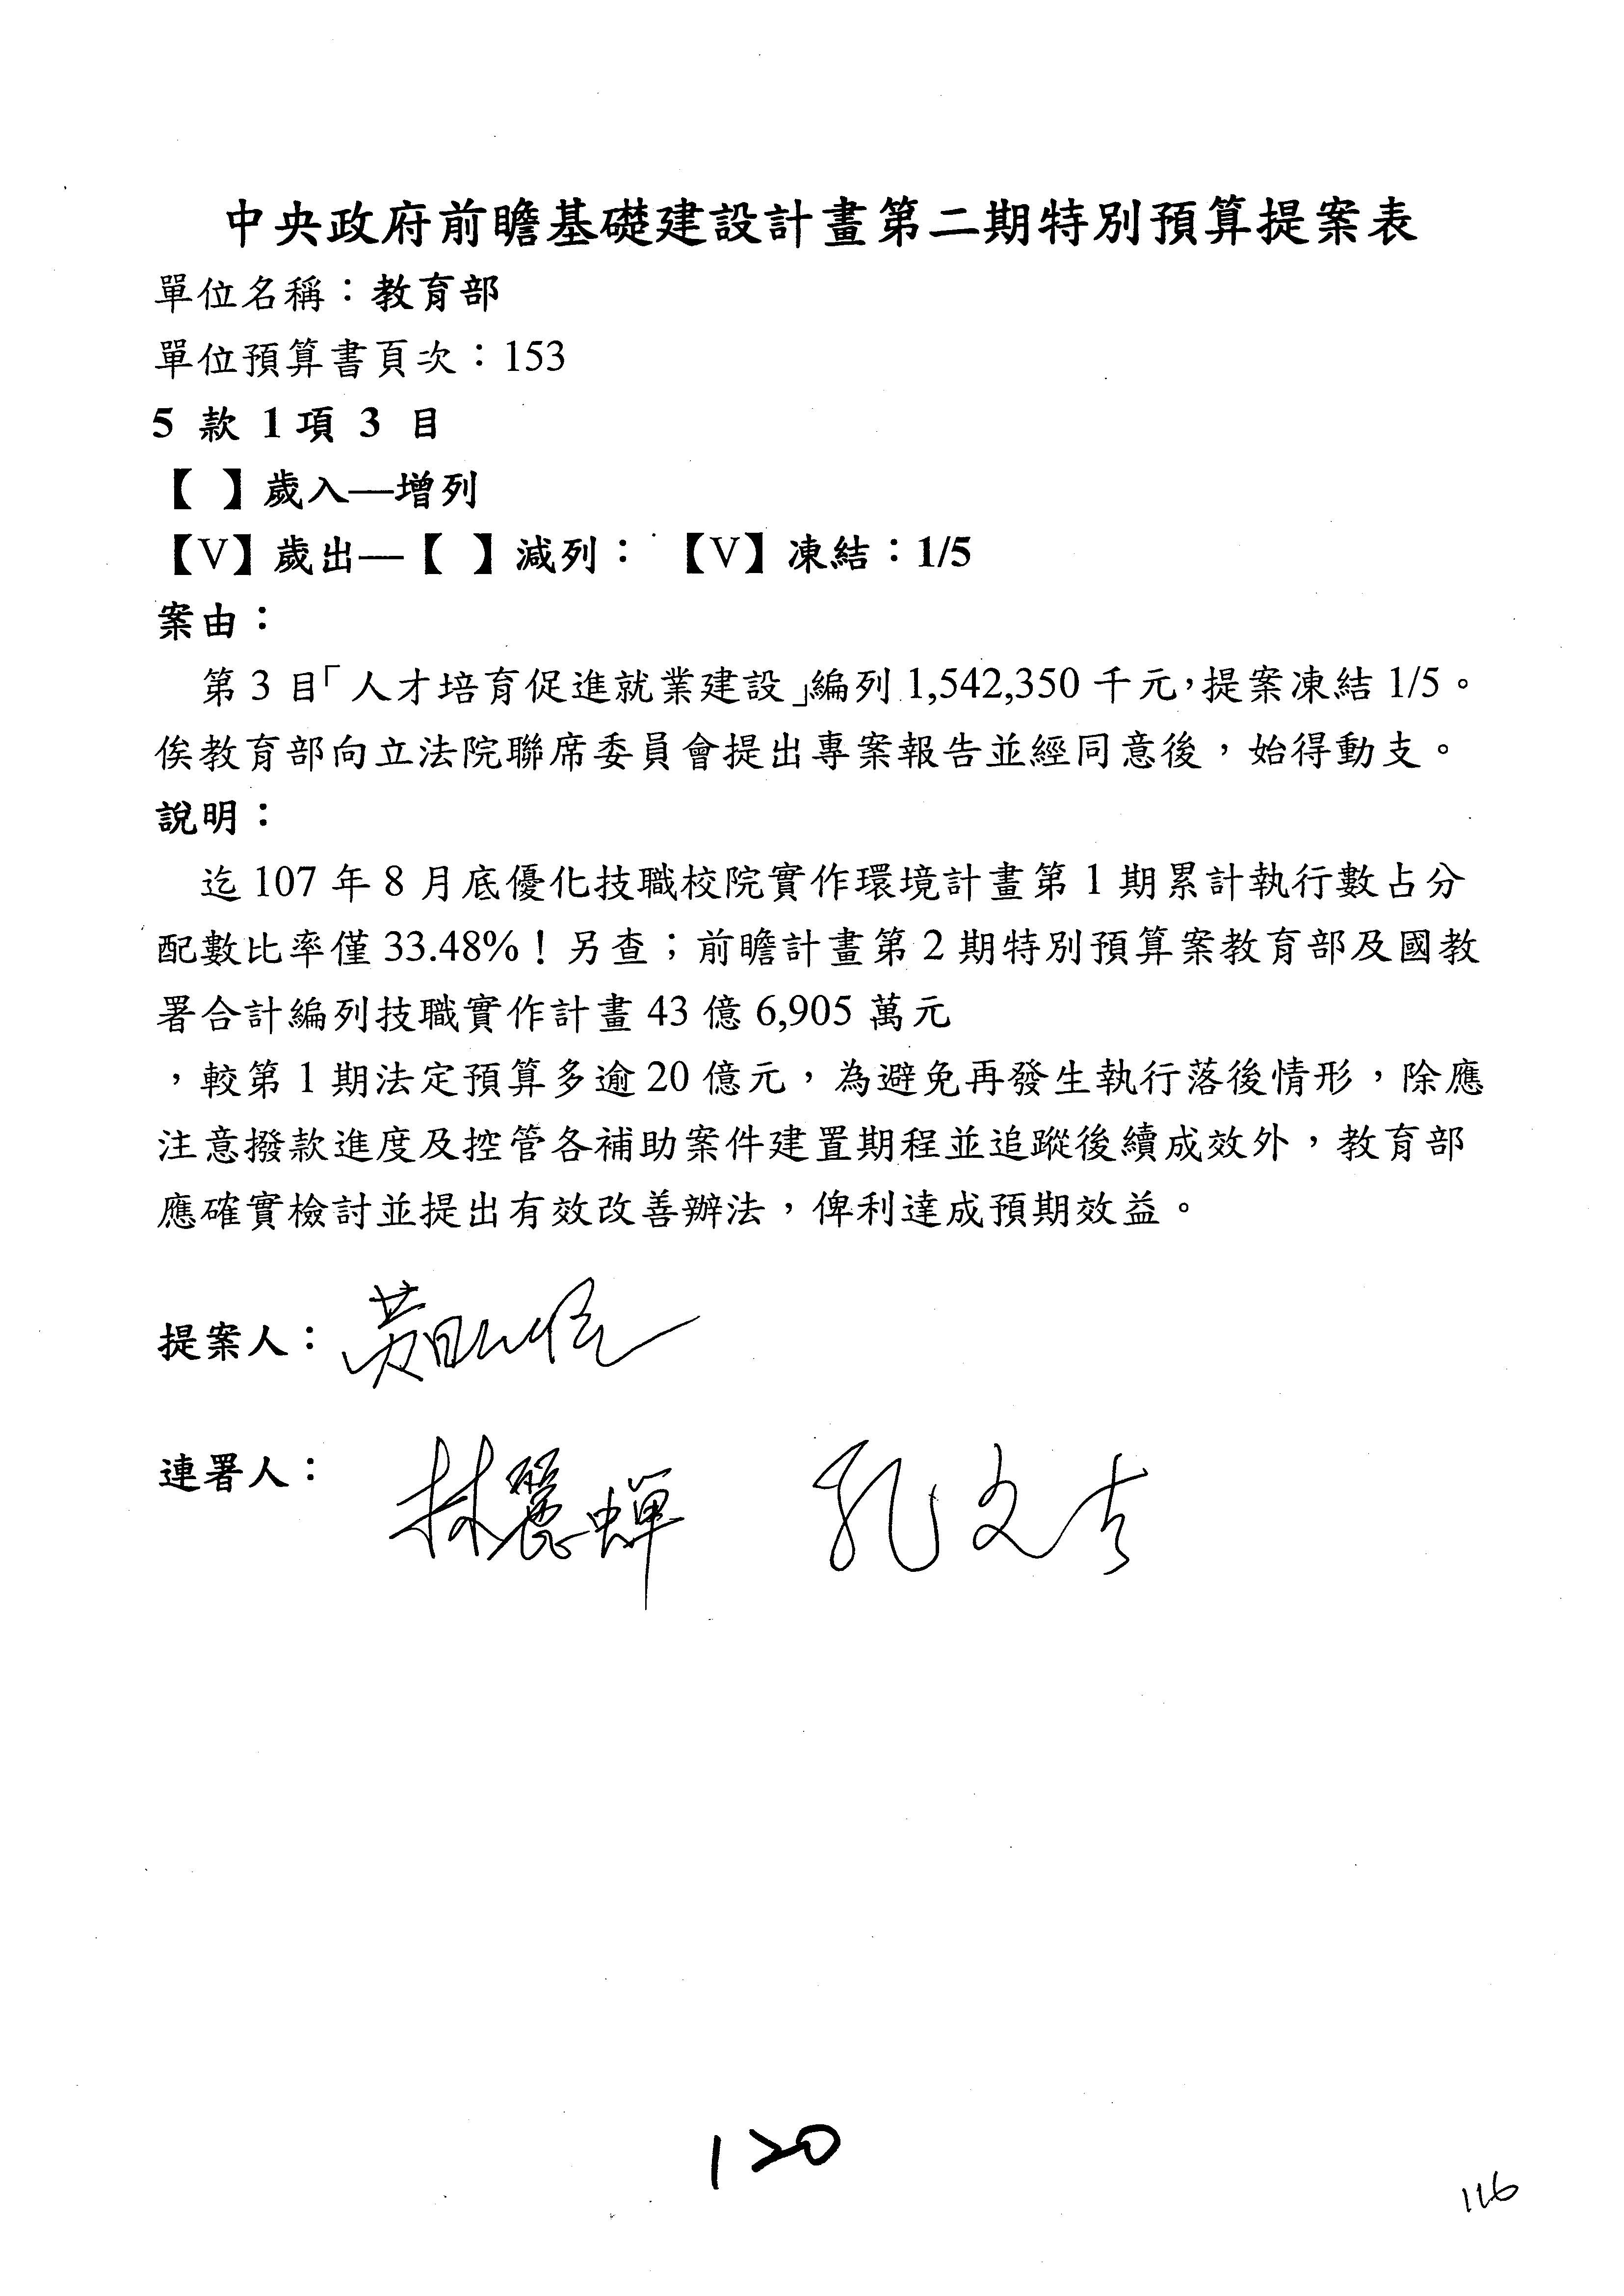 中央政府前瞻基礎建設計畫第二期特別預算提案表
單位名稱：教育部
單位預算書頁次：153
5 款 1 項 3 目
【 】歲入—增列
【V】歲出—【 】減列： 【V】凍結：1/5
案由：
第 3 目「人才培育促進就業建設」編列 1,542,350 千元，提案凍結 1/5。
俟教育部向立法院聯席委員會提出專案報告並經同意後，始得動支。
說明：
迄 107 年 8 月底優化技職校院實作環境計畫第 1 期累計執行數占分
配數比率僅 33.48%！另查；前瞻計畫第 2 期特別預算案教育部及國教
署合計編列技職實作計畫 43 億 6,905 萬元
，較第 1 期法定預算多逾 20 億元，為避免再發生執行落後情形，除應
注意撥款進度及控管各補助案件建置期程並追蹤後續成效外，教育部
應確實檢討並提出有效改善辦法，俾利達成預期效益。
提案人：
連署人： 林麗蟬 孔文吉
120
116